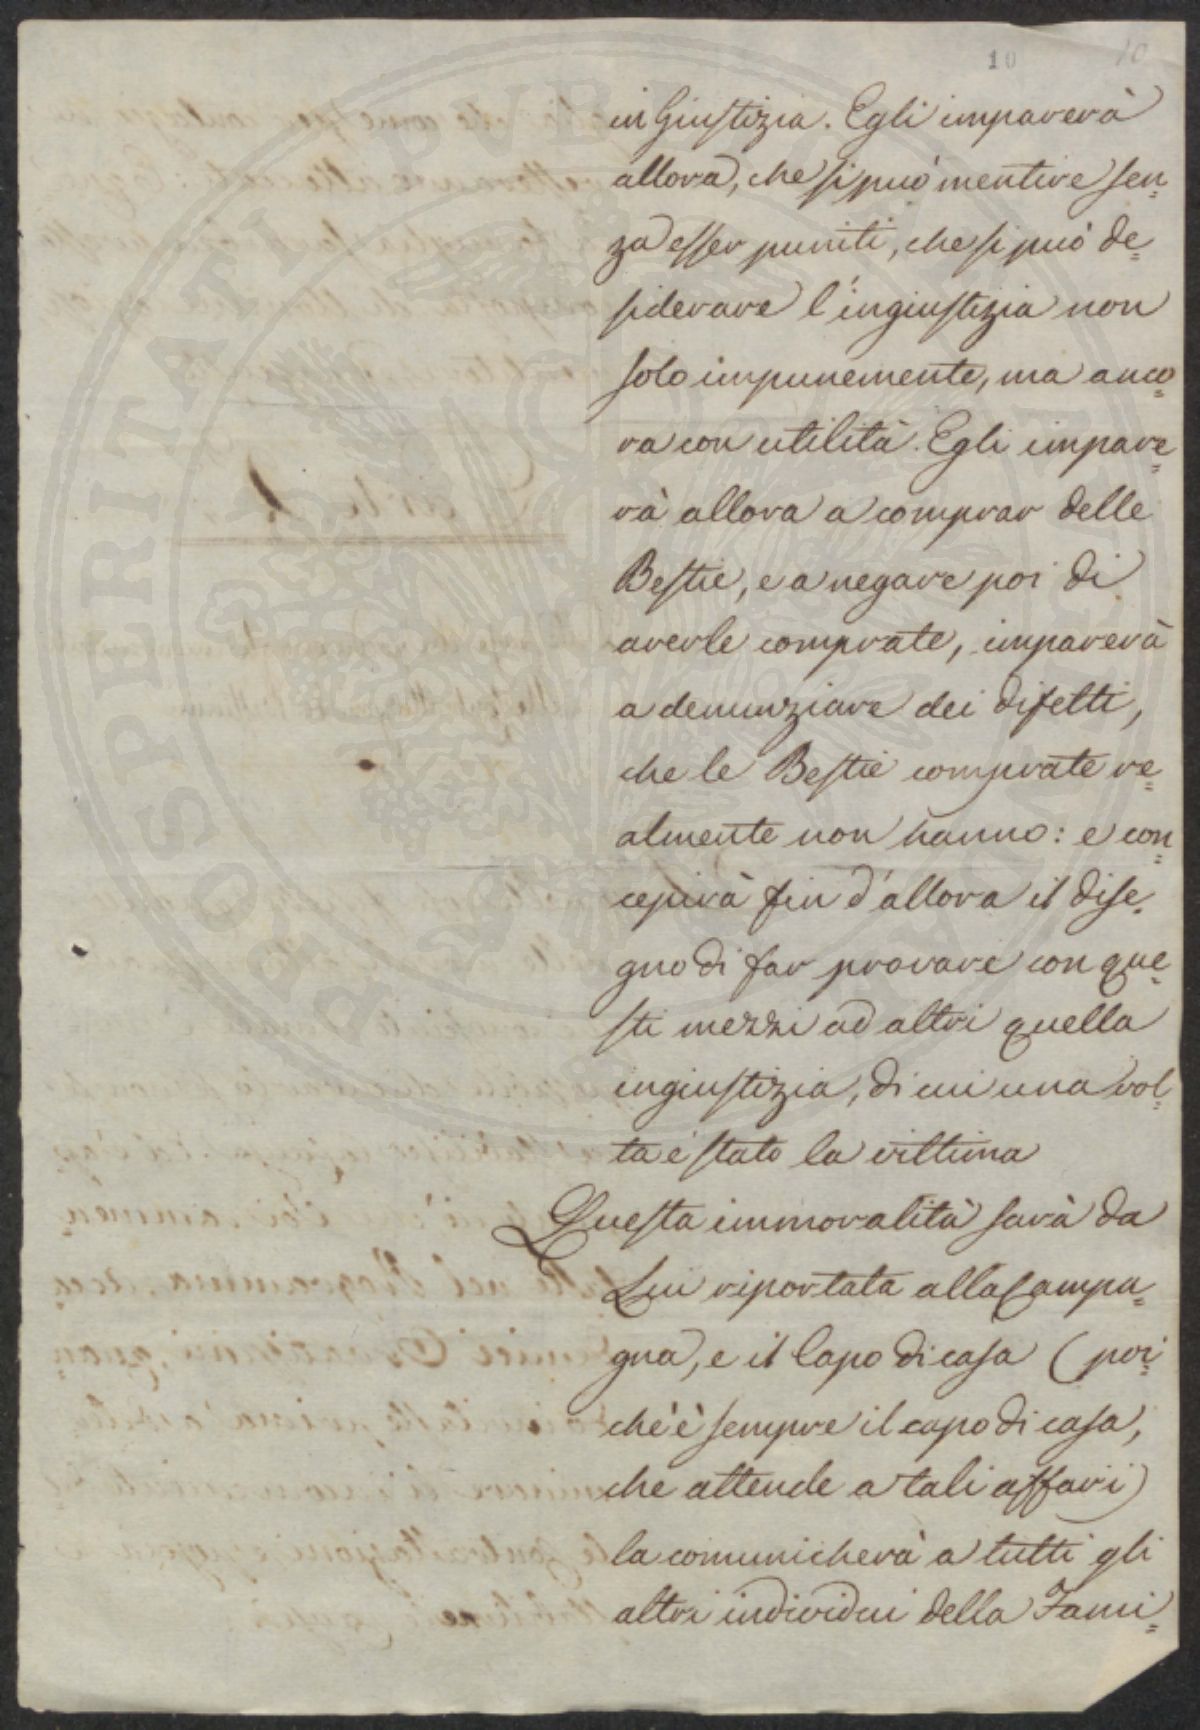 10 10
in Giustizia. Egli imparerà
allora, che si può mentire sen=
za esser puniti, che si può de=
siderare l'ingiustizia non
solo impunemente, ma anco=
ra con utilità. Egli impare=
rà allora a comprar delle
Bestie, e a negare poi di
averle comprate, imparerà
a denunziare dei difetti,
che le Bestie comprate re=
almente non hanno: e con=
cepirà fin d'allora il dise=
gno di far provare con que=
sti mezzi ad altri quella
ingiustizia, di cui una vol=
ta è stato la vittima
Questa immoralità sarà da
Lui riportata alla Campa=
gna, e il Capo di casa (poi=
chè è sempre il capo di casa,
che attende a tali affari)
la comunicherà a tutti gli
altri individui della Fami=
PROSPERITATI PUBLICAE